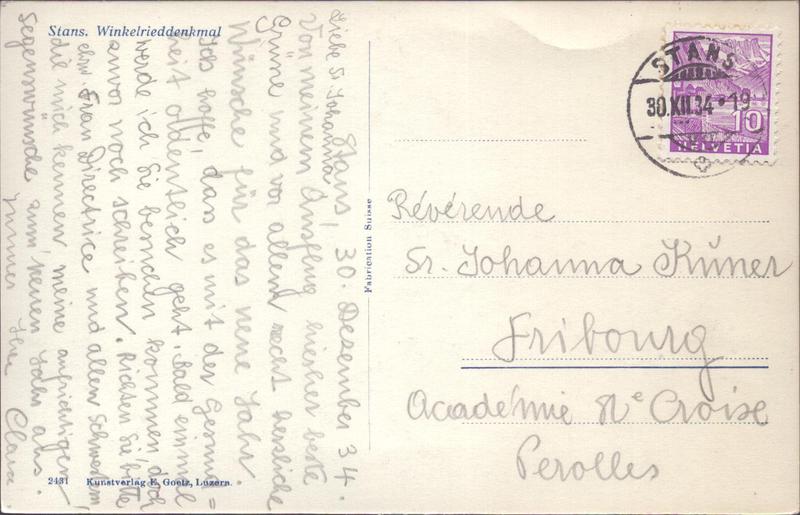 Stans. Winkelrieddenkmal
Stans, 30. Dezember 34.
Liebe S. Johanna
Von meinem Ausflug hieher beste
Grüne und vor allem recht herzliche
Wünsche für das neue Jahr.
Ich hoffe, dass es mit der Gesund=
heit ordentlich geht. Bald einmal
werde ich Sie besuchen kommen, doch
zuvor noch schreiben. Richten Sie bitte
ehrw Frau Directrice und allen Schwestern,
die mich kennen meine aufrichtigen
Segenswünsche zum neuen Jahr aus.
Immer Ihre Clara
2431 Kunstverlag E. Goetz, Luzern.
Fabrication Suisse
STANS
30.XII.34 19
10
HELVETIA
Révérende
Sr. Johanna Kuner
Fribourg
Académie Ste Croix
Perolles